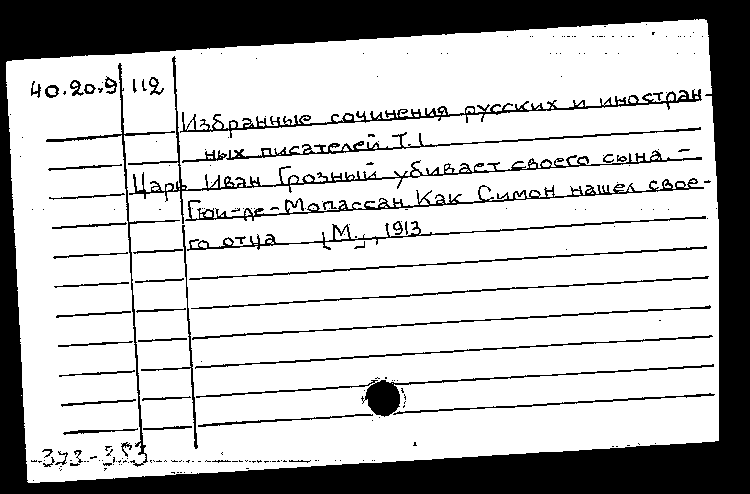 40.20.9 112
Избранные сочинения русских и иностран-
ных писателей. Т. 1.
Царь Иван Грозный убивает своего сына. -
Гюи-де-Мопассан. Как Симон нашел свое-
го отца [М.], 1913.
373-383